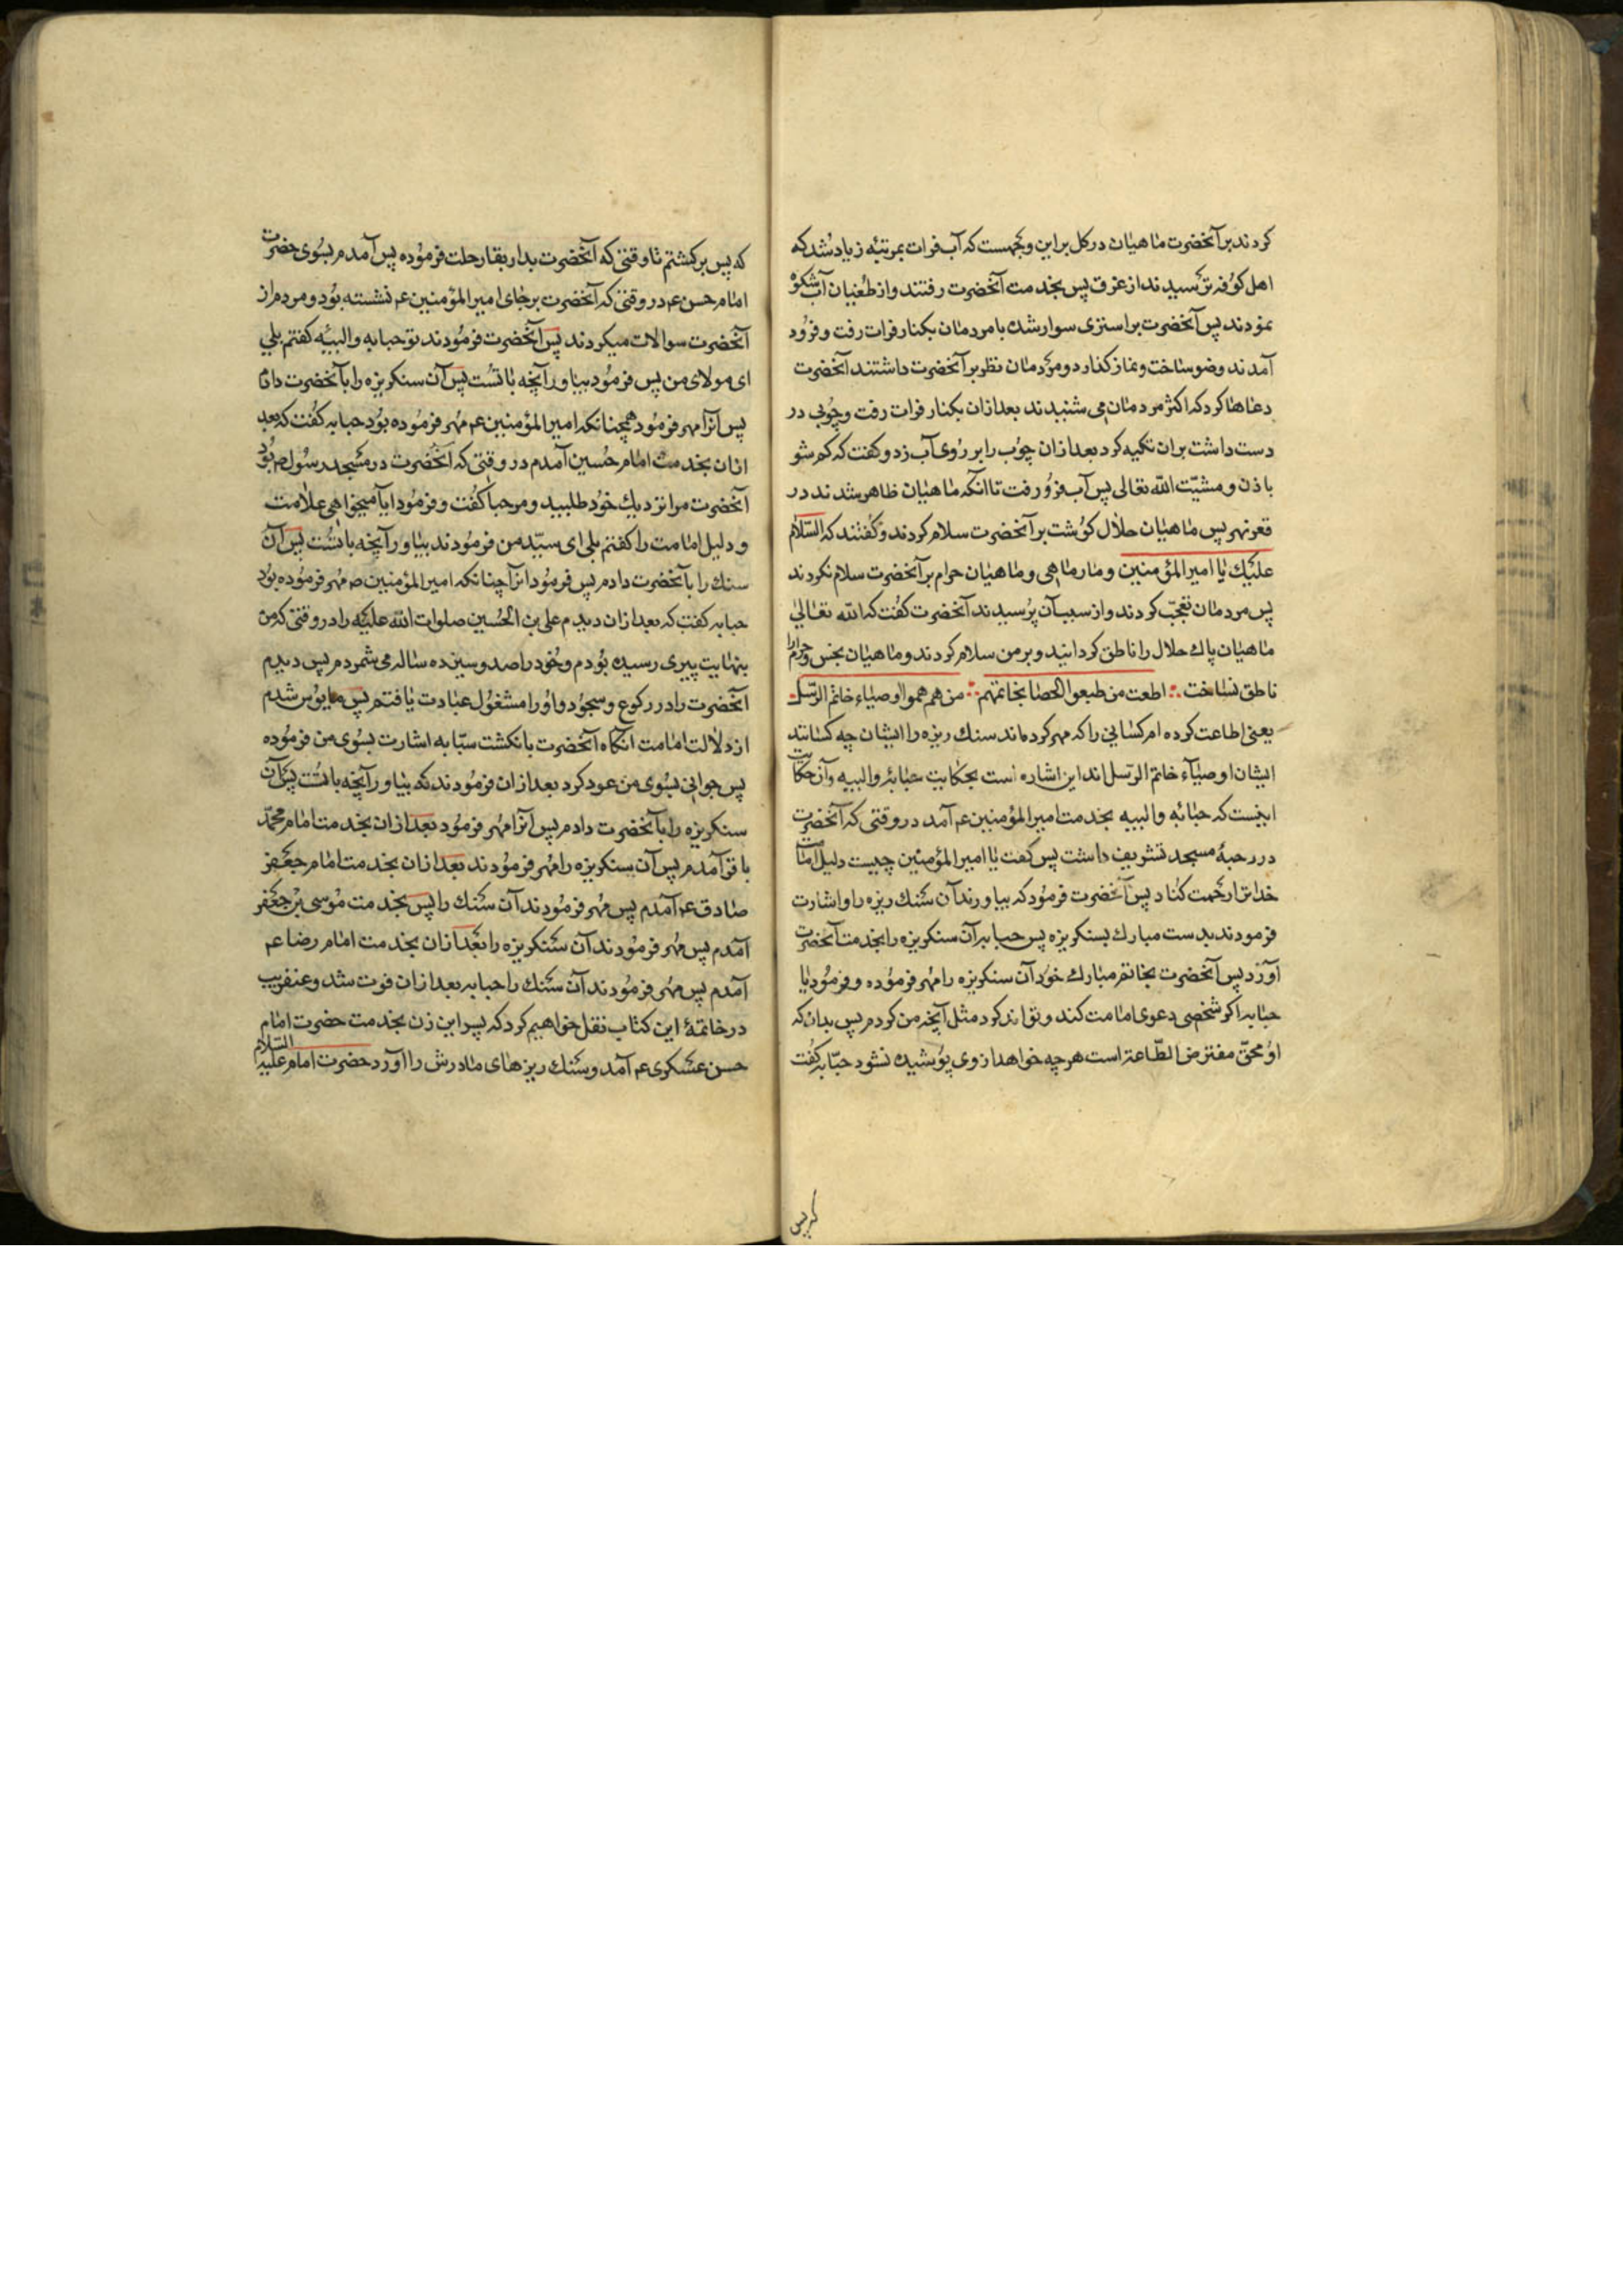 کردند برآنحضرت ماهیان در کل براین وجهست که آب فرات بمرتبه زیاد شد که
اهل کوفه ترسیدند از غرق پس بخدمت آنحضرت رفتند واز طغیان آب شکوه
نمودند پس آنحضرت براستری سوار شد با مردمان بکنار فرات رفت و فرود
آمدند وضو ساخت و نماز کذارد و مردمان نظر برآنحضرت داشتند آنحضرت
دعاها کرد که اکثر مردمان می شنیدند بعد ازان بکنار فرات رفت و چوبی در
دست داشت بران تکیه کرد بعد ازان چوب را بر روی آب زد و کفت که کم شو
باذن و مشیّت الله تعالی پس آب فرو رفت تا انکه ماهیان ظاهر شدند در
قعر نهر پس ماهیان حلال کوشت برآنحضرت سلام کردند و کفتند که السّلام
علیك یا امیرالمؤمنین و مار ماهی و ماهیان حرام برآنحضرت سلام نکردند
پس مردمان تعجّب کردند و از سبب آن پرسیدند آنحضرت کفت که الله تعالی
ماهیان پاك حلال را ناطق کردانید و بر من سلام کردند و ماهیان نجس و حرام را
ناطق نساخت ∴ اطعت من طبعوا الحصا بخاتمهم ∴ من هم همو اوصیاء خاتم الرّسل
یعنی اطاعت کرده ام کسانی را که مهر کرده‌اند سنك ریزه را ایشان چه کسانند
ایشان اوصیآء خاتم الرّسل اند این اشاره است بحکایت حبابهٔ والبیه وآن حکایت
اینست که حبابه والبیه بخدمت امیرالمؤمنین عم آمد در وقتی که آنحضرت
در رحبهٔ مسجد تشریف داشت پس کفت یا امیرالمؤمنین چیست دلیل امامت
خدا ترا رحمت کناد پس آنحضرت فرمود که بیاورند آن سنك ریزه را و اشارت
فرمودند بدست مبارك بسنکریزه پس حبابه آن سنکریزه را بخدمت آنحضرت
آورد پس آنحضرت بخاتم مبارك خود آن سنکریزه را مهر فرموده و فرمود یا
حبابه اکر شخصی دعوی امامت کند و تواند کرد مثل آنچه من کردم پس بدان که
او محقّ مفترض الطّاعة است هرچه خواهد از وی پوشیده نشود حبّابه کفت
که پس
که پس برکشتم تا وقتی که آنحضرت بدار بقا رحلت فرموده پس آمدم بسوی حضرت
امام حسن عم در وقتی که آنحضرت برجای امیرالمؤمنین عم نشسته بود و مردم از
آنحضرت سوالات میکردند پس آنحضرت فرمودند تو حبابه والبیّه کفتم بلی
ای مولای من پس فرمود بیاور آنچه با تست پس آن سنکریزه را بآنحضرت دادم
پس آنرا مهر فرمود همچنانکه امیرالمؤمنین عم مهر فرموده بود حبابه کفت که بعد
ازان بخدمت امام حسین آمدم در وقتی که آنحضرت در مسجد رسول ص بود
آنحضرت مرا نزدیك خود طلبید و مرحبا کفت و فرمود ایا میخواهی علامت
و دلیل امامت را کفتم بلی ای سیّد من فرمودند بیاور آنچه با تست پس آن
سنك را بآنحضرت دادم پس فرمود انرا چنانکه امیرالمؤمنین ص مهر فرموده بود
حبابه کفت که بعد ازان دیدم علی بن الحسین صلوات الله علیه را در وقتی که من
بنهایت پیری رسیده بودم و خود را صد و سیزده ساله می شمردم پس دیدم
آنحضرت را در رکوع و سجود و او را مشغول عبادت یافتم پس مایوس شدم
از دلالت امامت انکاه آنحضرت بانکشت سبّابه اشارت بسوی من فرموده
پس جوانی بسوی من عود کرد بعد ازان فرمودند که بیاور آنچه با تست پس آن
سنکریزه را بآنحضرت دادم پس انرا مهر فرمود بعد ازان بخدمت امام محمّد
باقر آمدم پس آن سنکریزه را مهر فرمودند بعد ازان بخدمت امام جعفر
صادق عم آمدم پس مهر فرمودند آن سنك را پس بخدمت موسی بن جعفر
آمدم پس مهر فرمودند آن سنکریزه را بعد ازان بخدمت امام رضا عم
آمدم پس مهر فرمودند آن سنك را حبابه بعد ازان فوت شد و عنقریب
در خاتمهٔ این کتاب نقل خواهیم کرد که پسر این زن بخدمت حضرت امام
حسن عسکری عم آمد و سنك ریزهای مادرش را آورد حضرت امام علیه السّلام